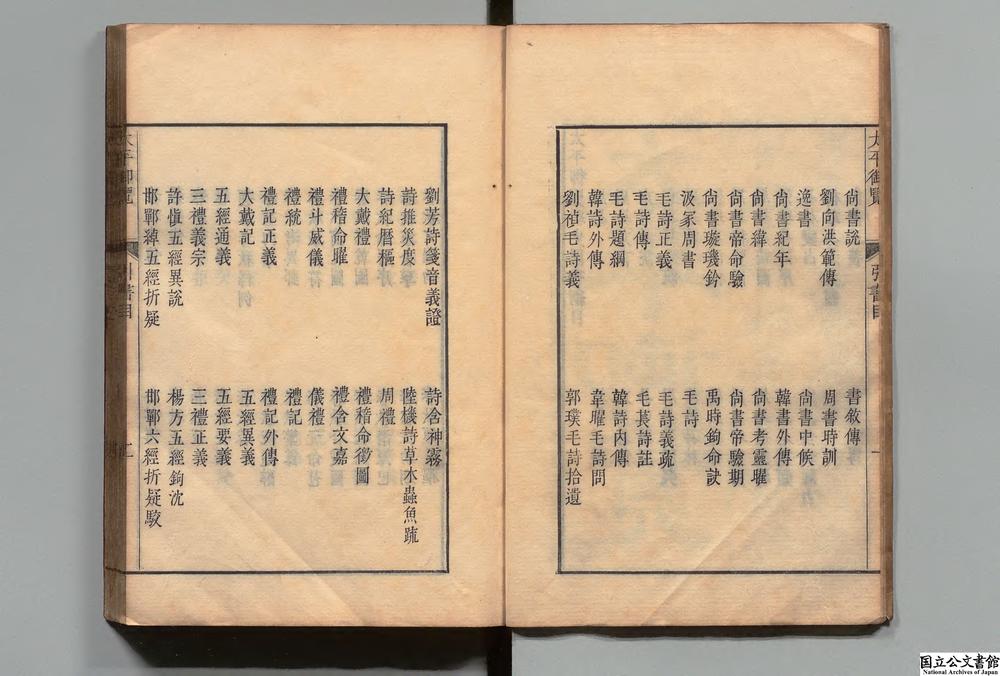 太平御覽
引書目
一
尙書說
書敘傳
劉向洪範傳
周書時訓
逸書
尙書中候
尙書紀年
韓書外傳
尙書緯
尙書考靈曜
尙書帝命驗
尙書帝驗期
尙書璇璣鈐
禹時鉤命訣
汲冢周書
毛詩
毛詩正義
毛詩義疏
毛詩傳
毛萇詩註
毛詩題綱
韓詩內傳
韓詩外傳
韋曜毛詩問
劉禎毛詩義
郭璞毛詩拾遺
劉芳詩箋音義證
詩含神霧
詩推災度
陸機詩草木蟲魚疏
詩紀曆樞
周禮
大戴禮
禮稽命徵圖
禮稽命曜
禮含文嘉
禮斗威儀
儀禮
禮統
禮記
禮記正義
禮記外傳
大戴記
五經異義
五經通義
五經要義
三禮義宗
三禮正義
許愼五經異說
楊方五經鉤沈
邯鄲綽五經折疑
邯鄲六經折疑駮
太平御覽
引書目
国立公文書館
National Archives of Japan